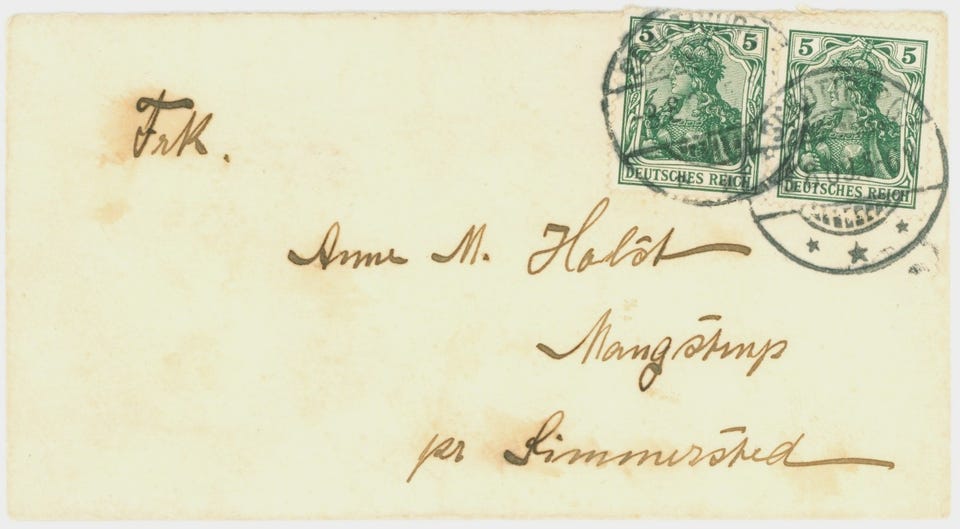 5 5 5 5
DEUTSCHES REICH DEUTSCHES REICH
Frk.
Anne M. Holst
Mangstrup
pr Simmersted